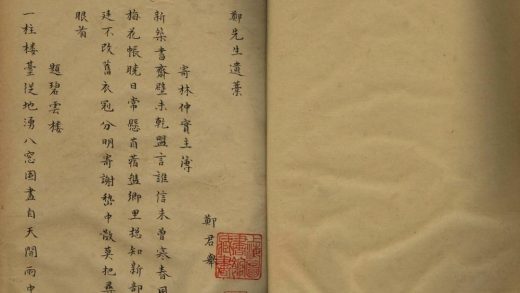 鄭先生遺藁
鄭君
寄林仲實主薄
新築書齋壁未乾盟言誰信未曾寒春
梅花帳曉日常懸苜蓿盤鄉里揔知新部
廷不改舊衣冠分明寄謝嵇中散莫把尋
眼看
題碧雲樓
一柱樓臺從地湧八窓圖畫自天開雨中